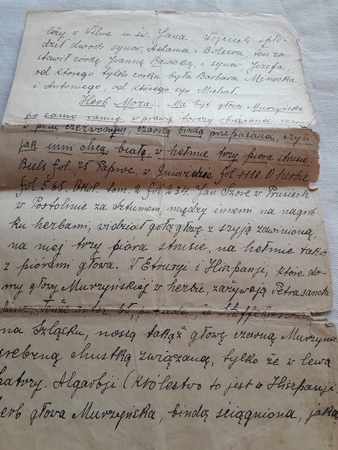 leży w Wilnie u św. Jana. Wojciech spło-
dził dwóch synów Adama i Bolesta ten zo-
stawił córkę Joannę i syna Józefa
od którego tylko córka była Barbara
i Antoniego, od którego syn Michał.
Herb Mora. Ma być głowa Murzyńska
po samo ramię, w prawą tarczy obrócona czarna
w polu czerwonym, czarną bindą przepasana, czyli
jak inni chcą, białą, w hełmie trzy pióra strusie.
Biels fol. 75 Paproc. w Gniazdzie fol 1110. O herbie
fol 565. Okol. tom. 2 fol 234. Jan Skore w Prusiech
w Postolinie za Sztumem, między innemi na nagrob-
ku herbami, widział gołą głowę z szyją zawinioną,
na niej trzy pióra strusie, na hełmie także
z piórami głowa. W Etrurji i Hiszpanji, które do-
my głowy Murzyńskiej w herbie, zażywają Petrasancta
na Szląsku, noszą takąż głowę czarną Murzyna
srebrną chustką związaną, tylko że w lewą
tarczy. Algarbji (Królestwo to jest w Hiszpanji
herb głowa Murzyńska, bindą ściągniona, jaką